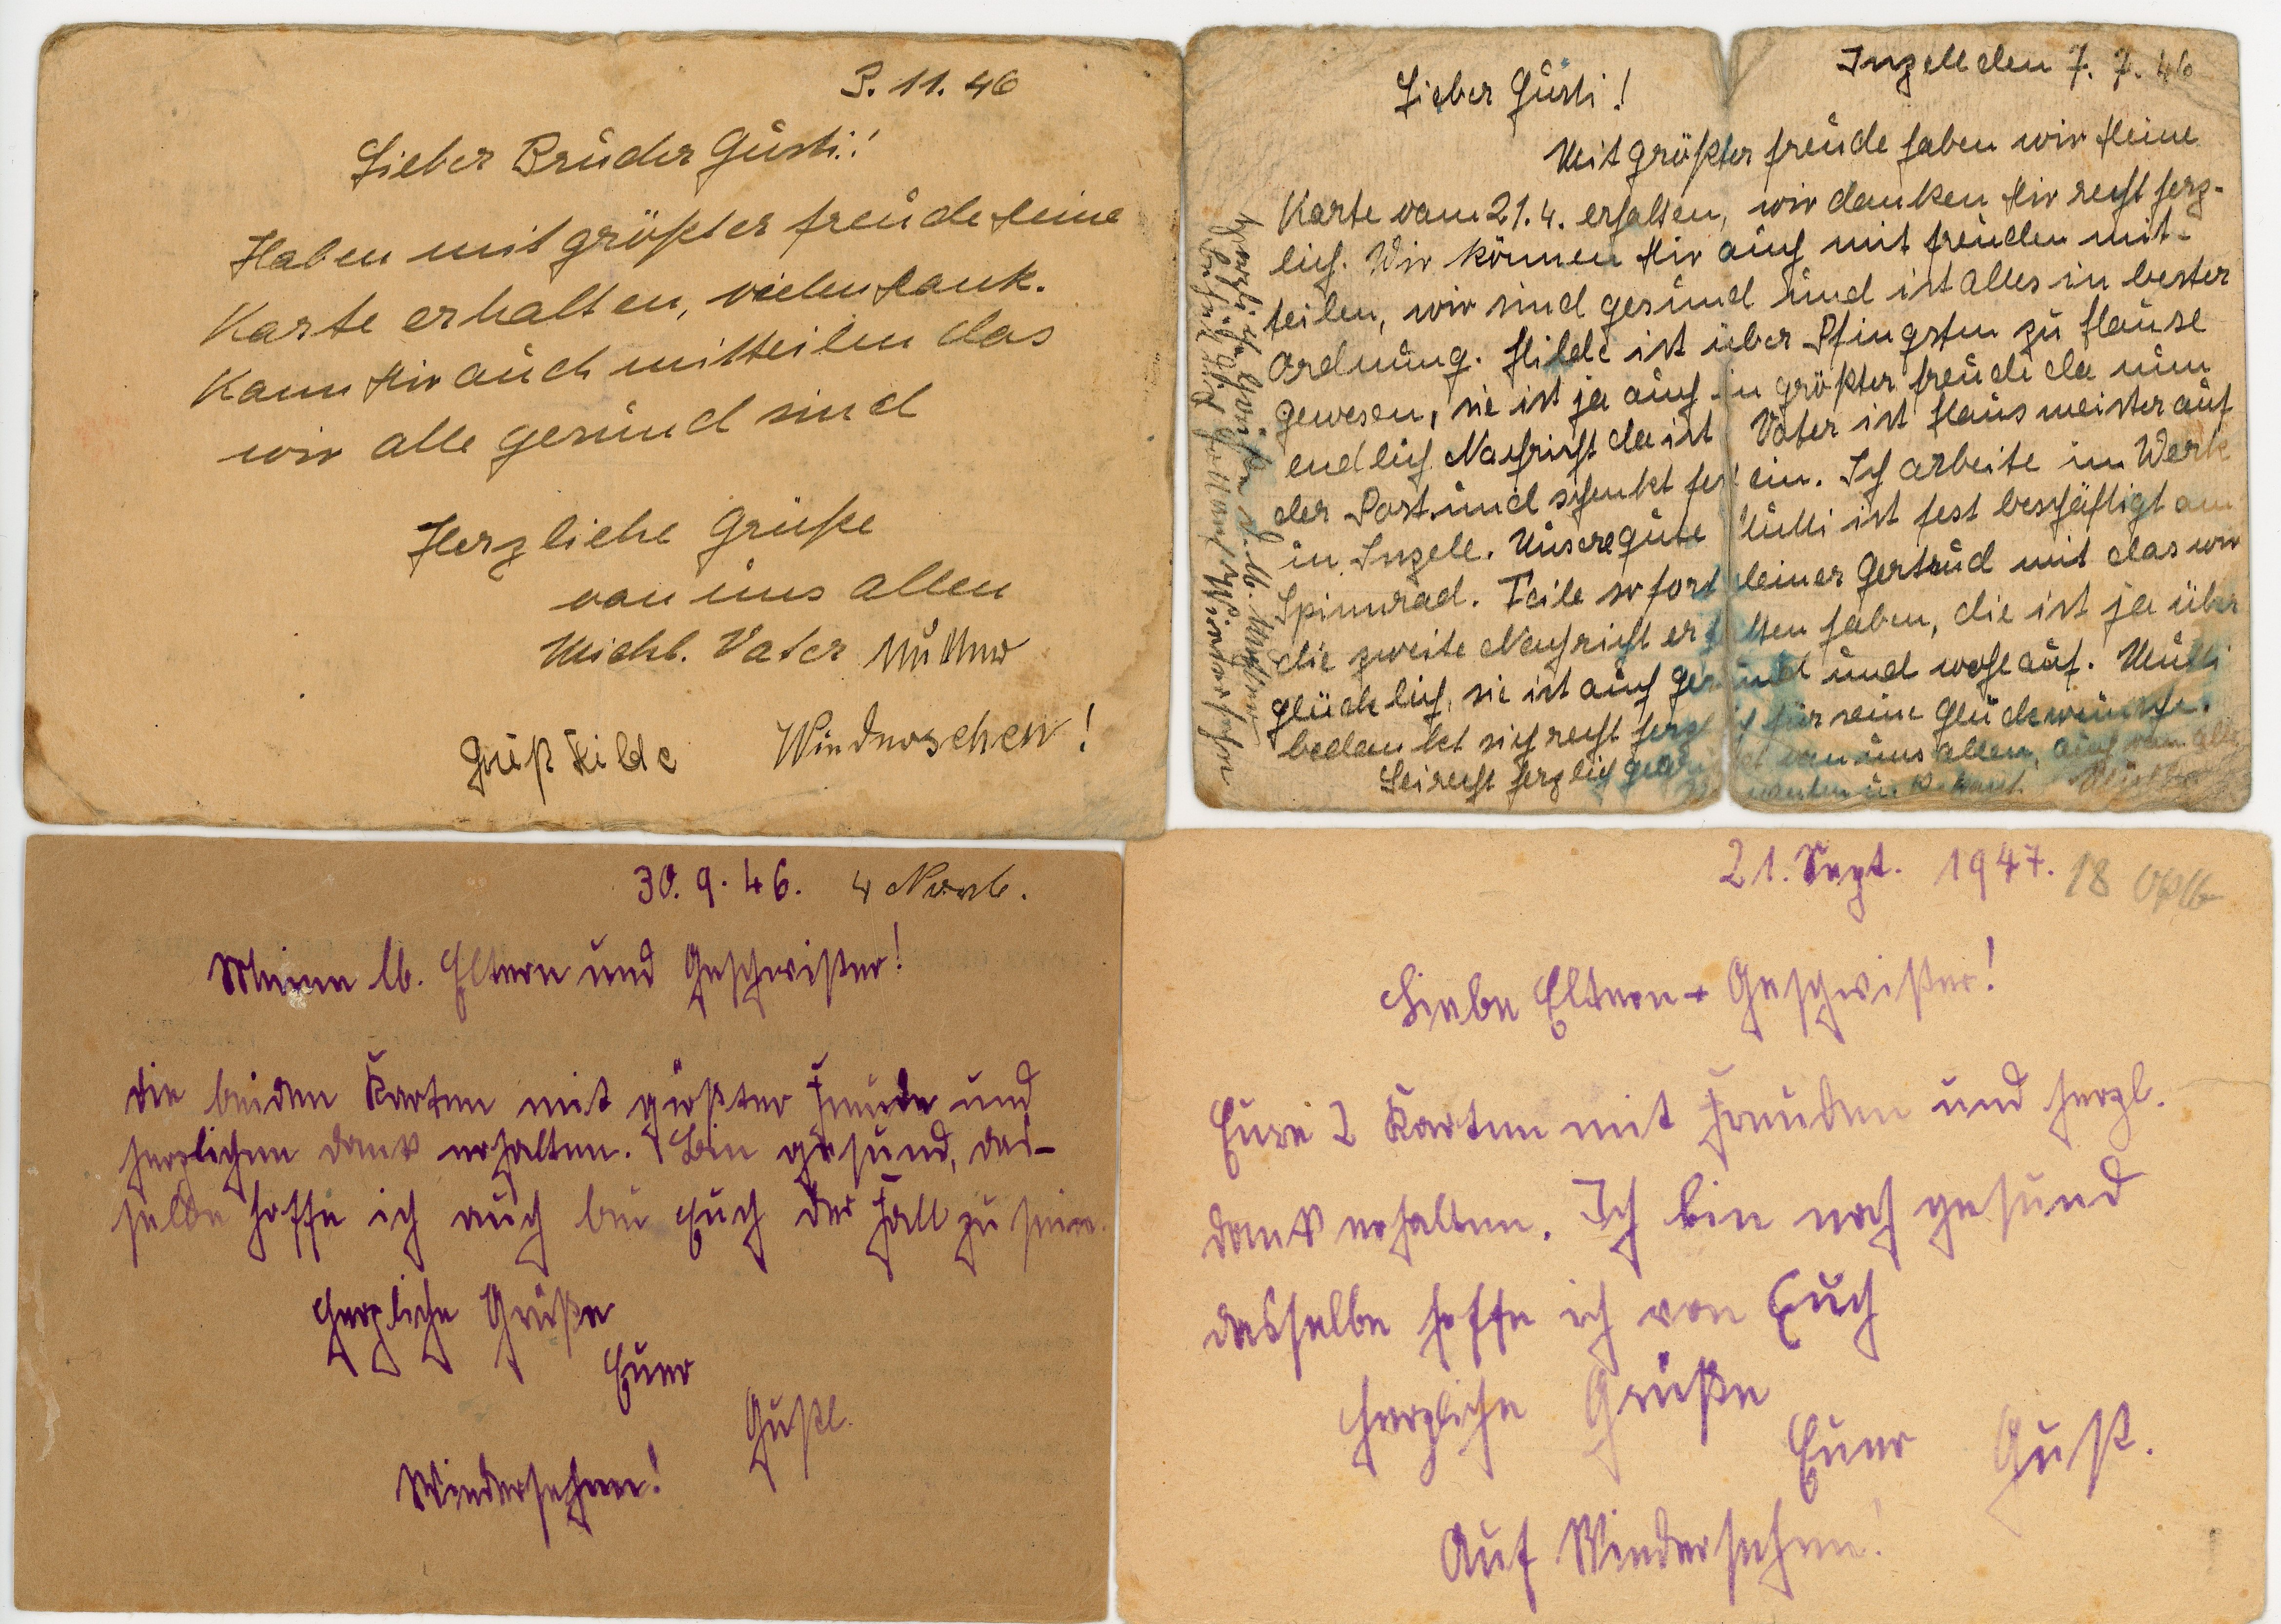 3. 11. 46
Lieber Bruder Gusti!
Haben mit größter freude Deine
Karte erhalten, vielen Dank.
Kann Dir auch mitteilen das
wir alle gesund sind
Herzliche Grüße
von uns allen
Michl. Vater Mutter
Gruß Hilde Wiedersehen!
Inzell den 7. 7. 46
Lieber Gusti!
Mit größter freude haben wir Deine
Karte vom 21. 4. erhalten, wir danken Dir recht herz-
lich. Wir können Dir auch mit freuden mit-
teilen, wir sind gesund und ist alles in bester
Ordnung. Hilde ist über Pfingsten zu Hause
gewesen, sie ist ja auch in größter freude da nun
endlich Nachricht da ist. Vater ist Hausmeister auf
der Post und schenkt fest ein. Ich arbeite im Werk
in Inzell. Unsere gute Mutti ist fest beschäftigt am
Spinnrad. Teile sofort Deiner Gertrud mit das wir
die zweite Nachricht erhalten haben, die ist ja über
glücklich, sie ist auch gesund und wohlauf. Mutti
bedankt sich recht herzlich für seine Glückwünsche.
Sei recht herzlich gegrüßt von uns allen, auch von alle
Mutter
Wiedersehn
30. 9. 46. 4 Novb.
Meine lb. Eltern und Geschwister!
Die beiden Karten mit größter Freude und
herzlichem Dank erhalten. Bin gesund, das-
selbe hoffe ich auch bei Euch der Fall zu sein.
Herzliche Grüße
Euer
Gustl.
Wiedersehen!
21. Sept. 1947. 18 Okth
Liebe Eltern + Geschwister!
Eure 2 Karten mit Freuden und herzl.
Dank erhalten. Ich bin noch gesund
dasselbe hoffe ich von Euch
Herzliche Grüße
Euer Gust.
Auf Wiedersehen!